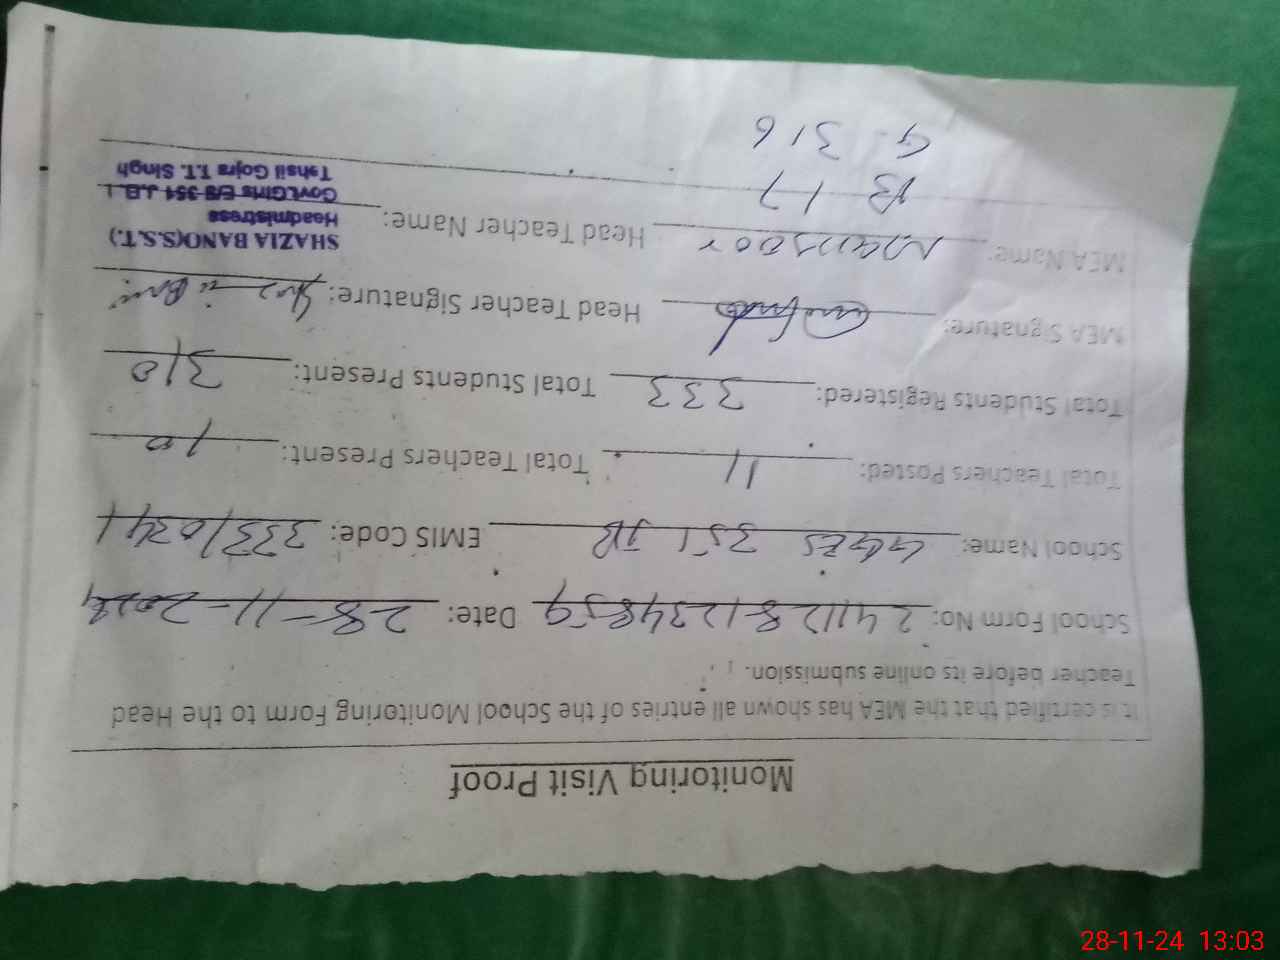 Monitoring Visit Proof
It is certified that the MEA has shown all entries of the School Monitoring Form to the Head
Teacher before its online submission.
School Form No: 2411281234859 Date: 28-11-2024
School Name: GGES 351 JB EMIS Code: 33310341
Total Teachers Posted: 11 Total Teachers Present: 10
Total Students Registered: 333 Total Students Present: 310
MEA Signature: Head Teacher Signature:
MEA Name: Manzoor Head Teacher Name:
SHAZIA BANO(S.S.T.)
Headmistress
Govt.Girls E/S 351 J.B.
Tehsil Gojra T.T. Singh
B 17
G 316
28-11-24 13:03